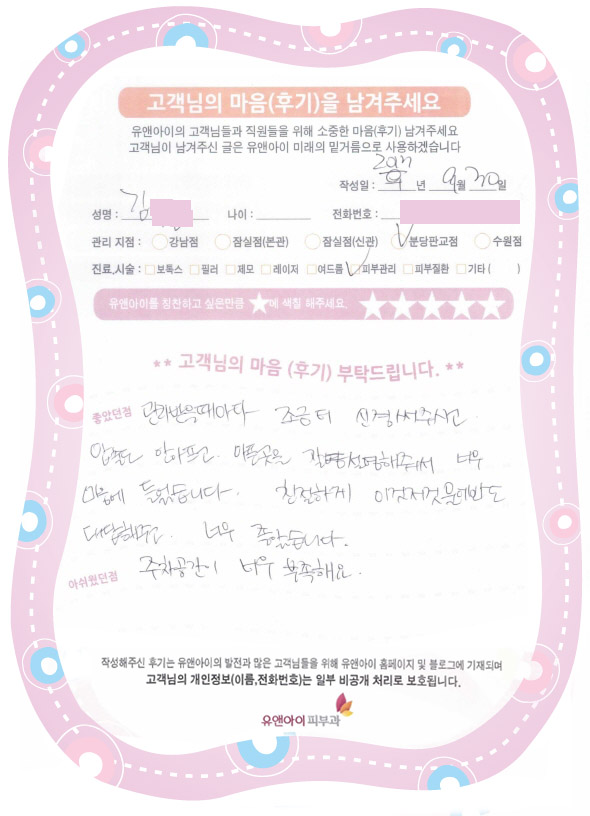 고객님의 마음(후기)을 남겨주세요
유앤아이의 고객님들과 직원들을 위해 소중한 마음(후기) 남겨주세요
고객님이 남겨주신 글은 유앤아이 미래의 밑거름으로 사용하겠습니다
작성일 : 2017 년 9월 30일
성명 : 김 나이 : 전화번호 :
관리 지점 : 강남점 잠실점(본관) 잠실점(신관) 분당판교점 수원점
진료,시술 : 보톡스 필러 제모 레이저 여드름 피부관리 피부질환 기타 ( )
유앤아이를 칭찬하고 싶은만큼 ★에 색칠 해주세요. ★★★★★
** 고객님의 마음 (후기) 부탁드립니다. **
좋았던점 관리받을때마다 조금 더 신경써주시고
압출도 안아프고 아픈곳은 설명해주셔서 너무
마음에 들었습니다. 친절하게 이것저것 물어봐도
대답해주고 너무 좋았습니다.
아쉬웠던점 주차공간이 너무 부족해요.
작성해주신 후기는 유앤아이의 발전과 많은 고객님들을 위해 유앤아이 홈페이지 및 블로그에 기재되며
고객님의 개인정보(이름,전화번호)는 일부 비공개 처리로 보호됩니다.
유앤아이피부과